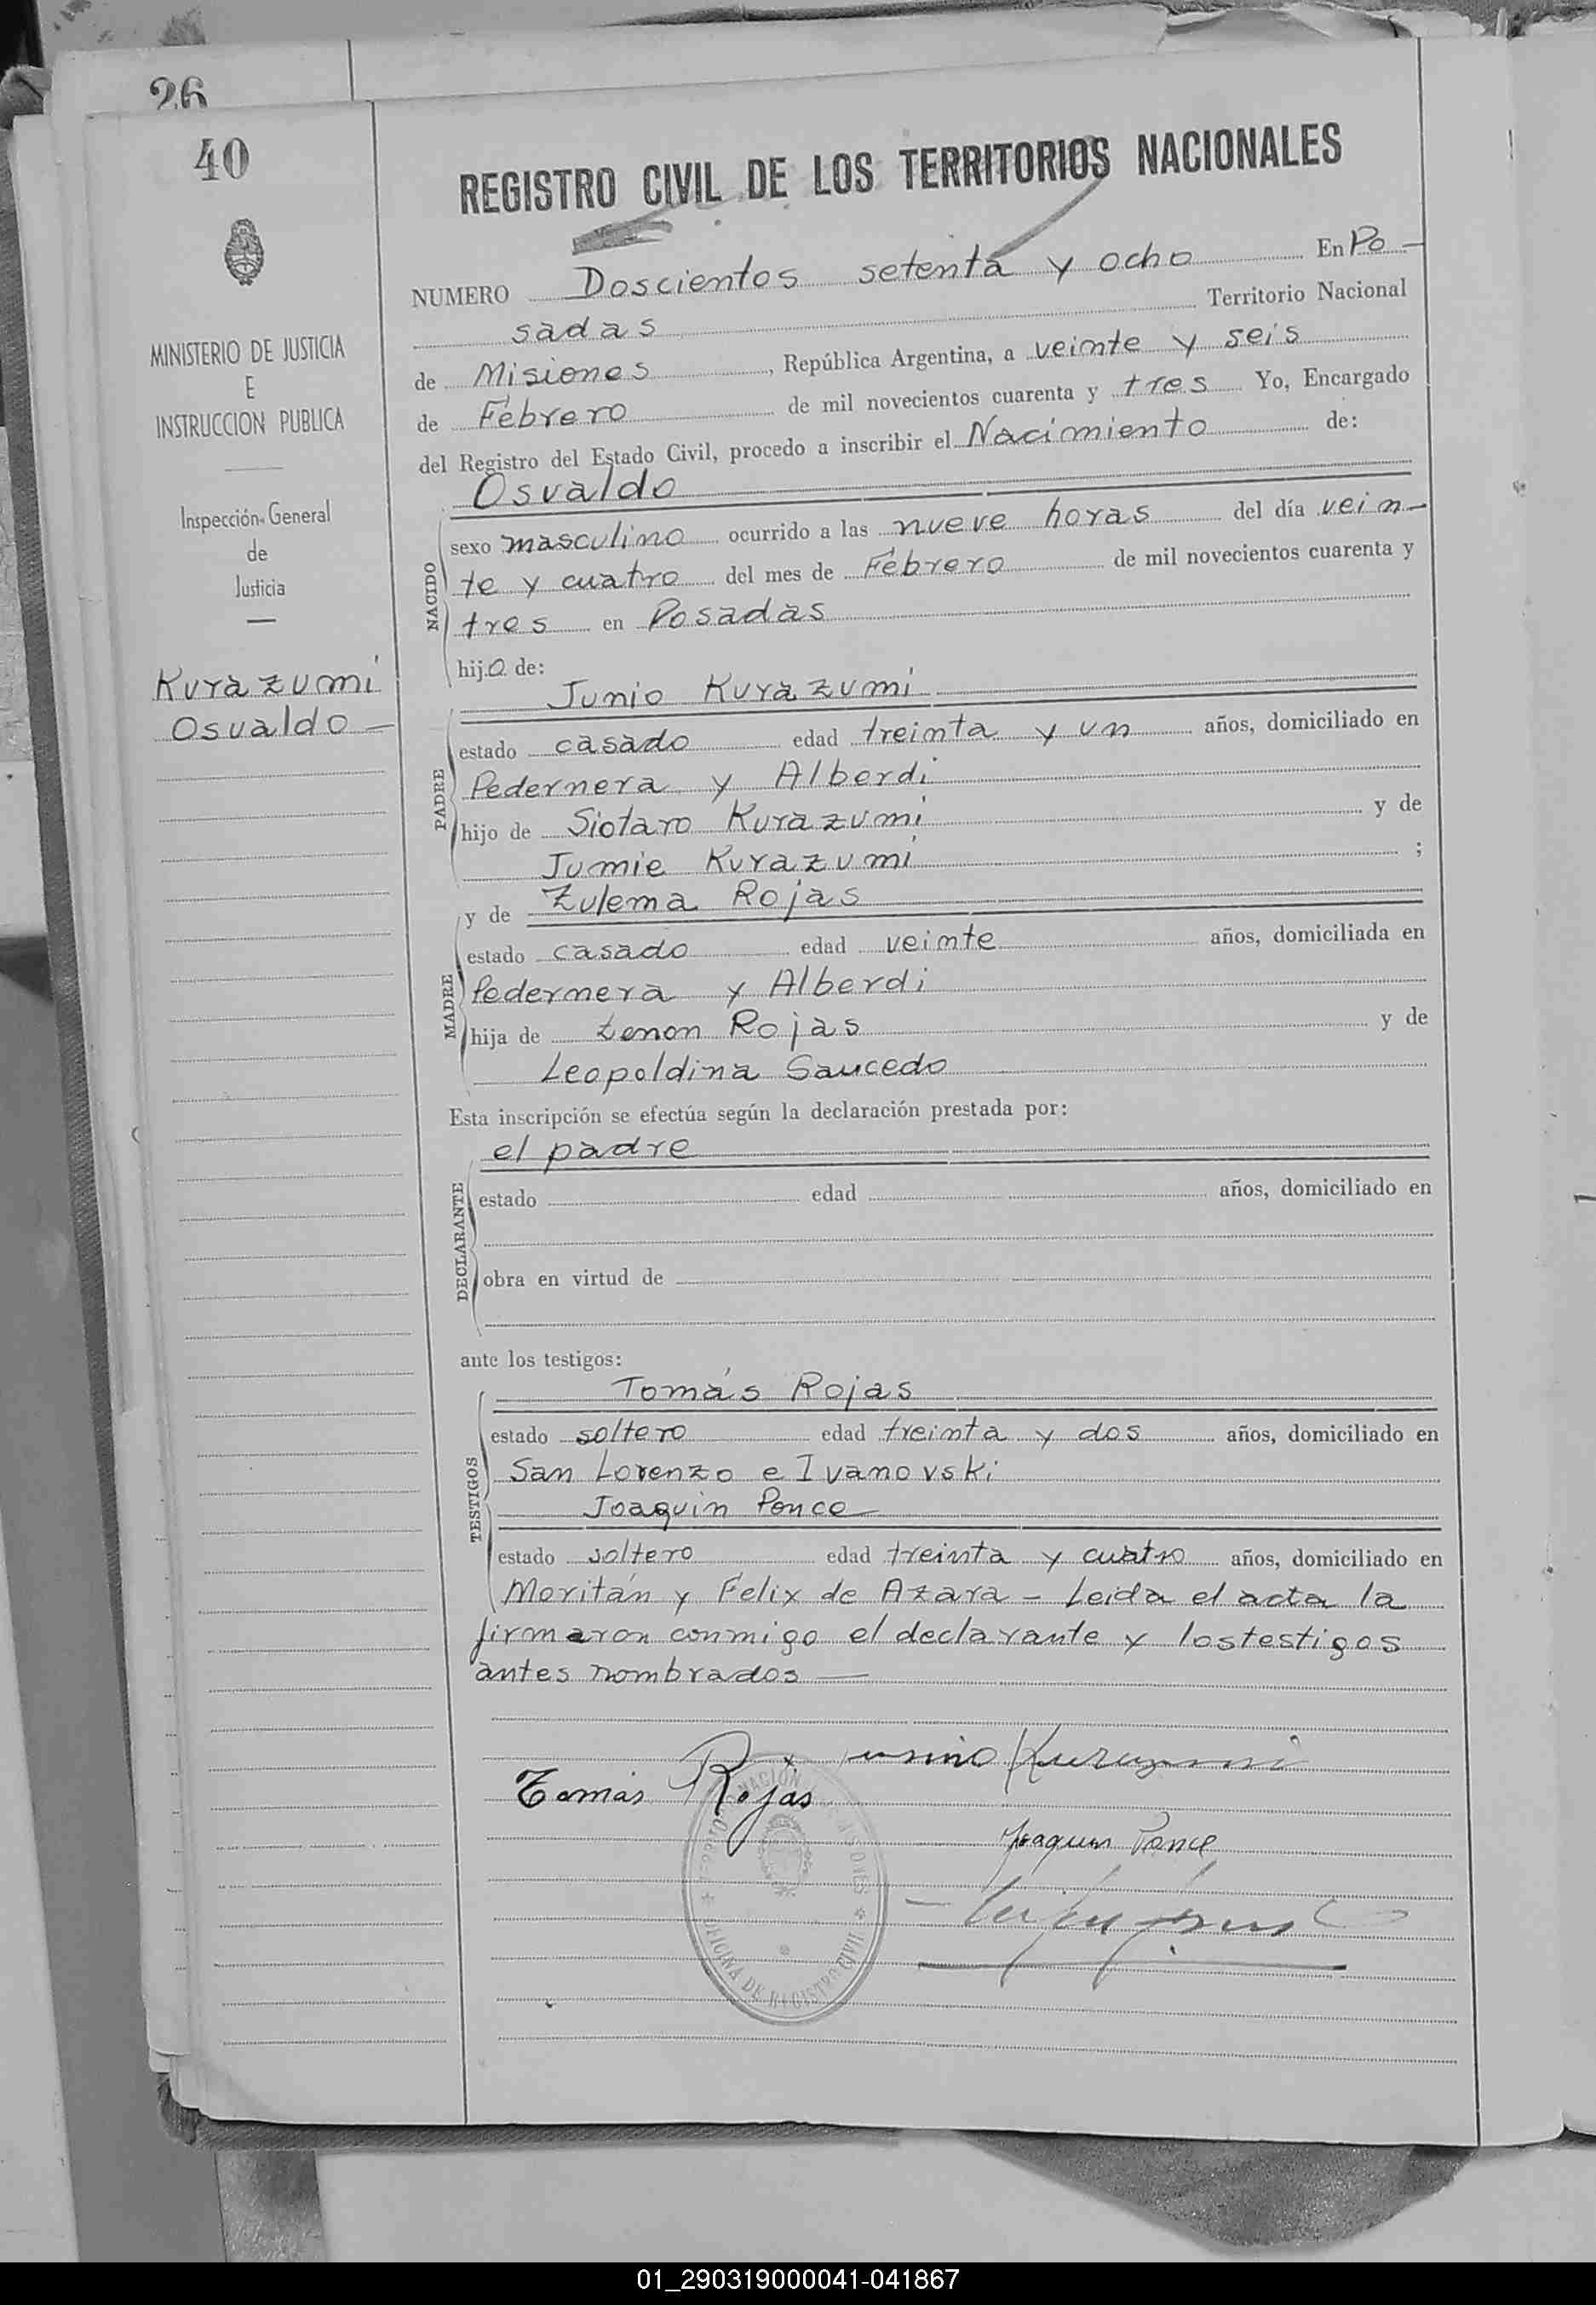 26
40
REGISTRO CIVIL DE LOS TERRITORIOS NACIONALES
NUMERO Doscientos setenta y ocho En Po-
sadas Territorio Nacional
de Misiones, República Argentina, a veinte y seis
de Febrero de mil novecientos cuarenta y tres Yo, Encargado
del Registro del Estado Civil, procedo a inscribir el Nacimiento de:
Osvaldo
NACIDO
sexo masculino ocurrido a las nueve horas del día vein-
te y cuatro del mes de Febrero de mil novecientos cuarenta y
tres en Posadas
hijo de:
MINISTERIO DE JUSTICIA
E
INSTRUCCION PUBLICA
Inspección General
de
Justicia
Kurazumi
Osvaldo
PADRE
Junio Kurazumi
estado casado edad treinta y un años, domiciliado en
Pedernera y Alberdi
hijo de Siotaro Kurazumi y de
Jumie Kurazumi ;
MADRE
y de Zulema Rojas
estado casado edad veinte años, domiciliada en
Pedernera y Alberdi
hija de Zenon Rojas y de
Leopoldina Saucedo
Esta inscripción se efectúa según la declaración prestada por:
DECLARANTE
el padre
estado edad años, domiciliado en
obra en virtud de
ante los testigos:
TESTIGOS
Tomás Rojas
estado soltero edad treinta y dos años, domiciliado en
San Lorenzo e Ivanovski
Joaquin Ponce
estado soltero edad treinta y cuatro años, domiciliado en
Moritán y Felix de Azara - Leida el acta la
firmaron conmigo el declarante y los testigos
antes nombrados
Kurazumi
Tomás Rojas
Joaquin Ponce
OFICINA DE REGISTRO CIVIL
01_290319000041-041867